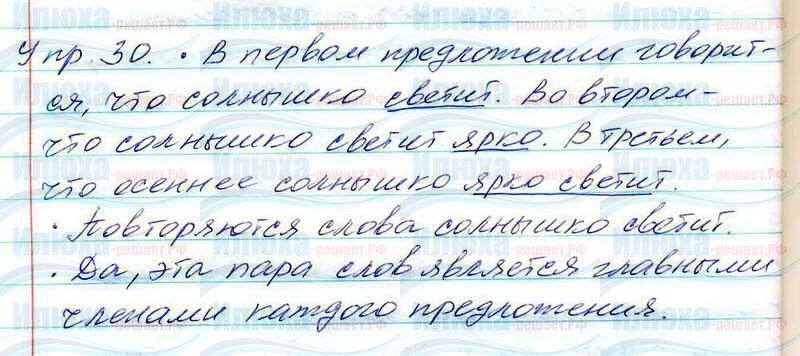 Упр. 30. • В первом предложении говорит-
ся, что солнышко светит. Во втором -
что солнышко светит ярко. В третьем,
что осеннее солнышко ярко светит.
• Повторяются слова солнышко светит.
• Да, эта пара слов является главными
членами каждого предложения.